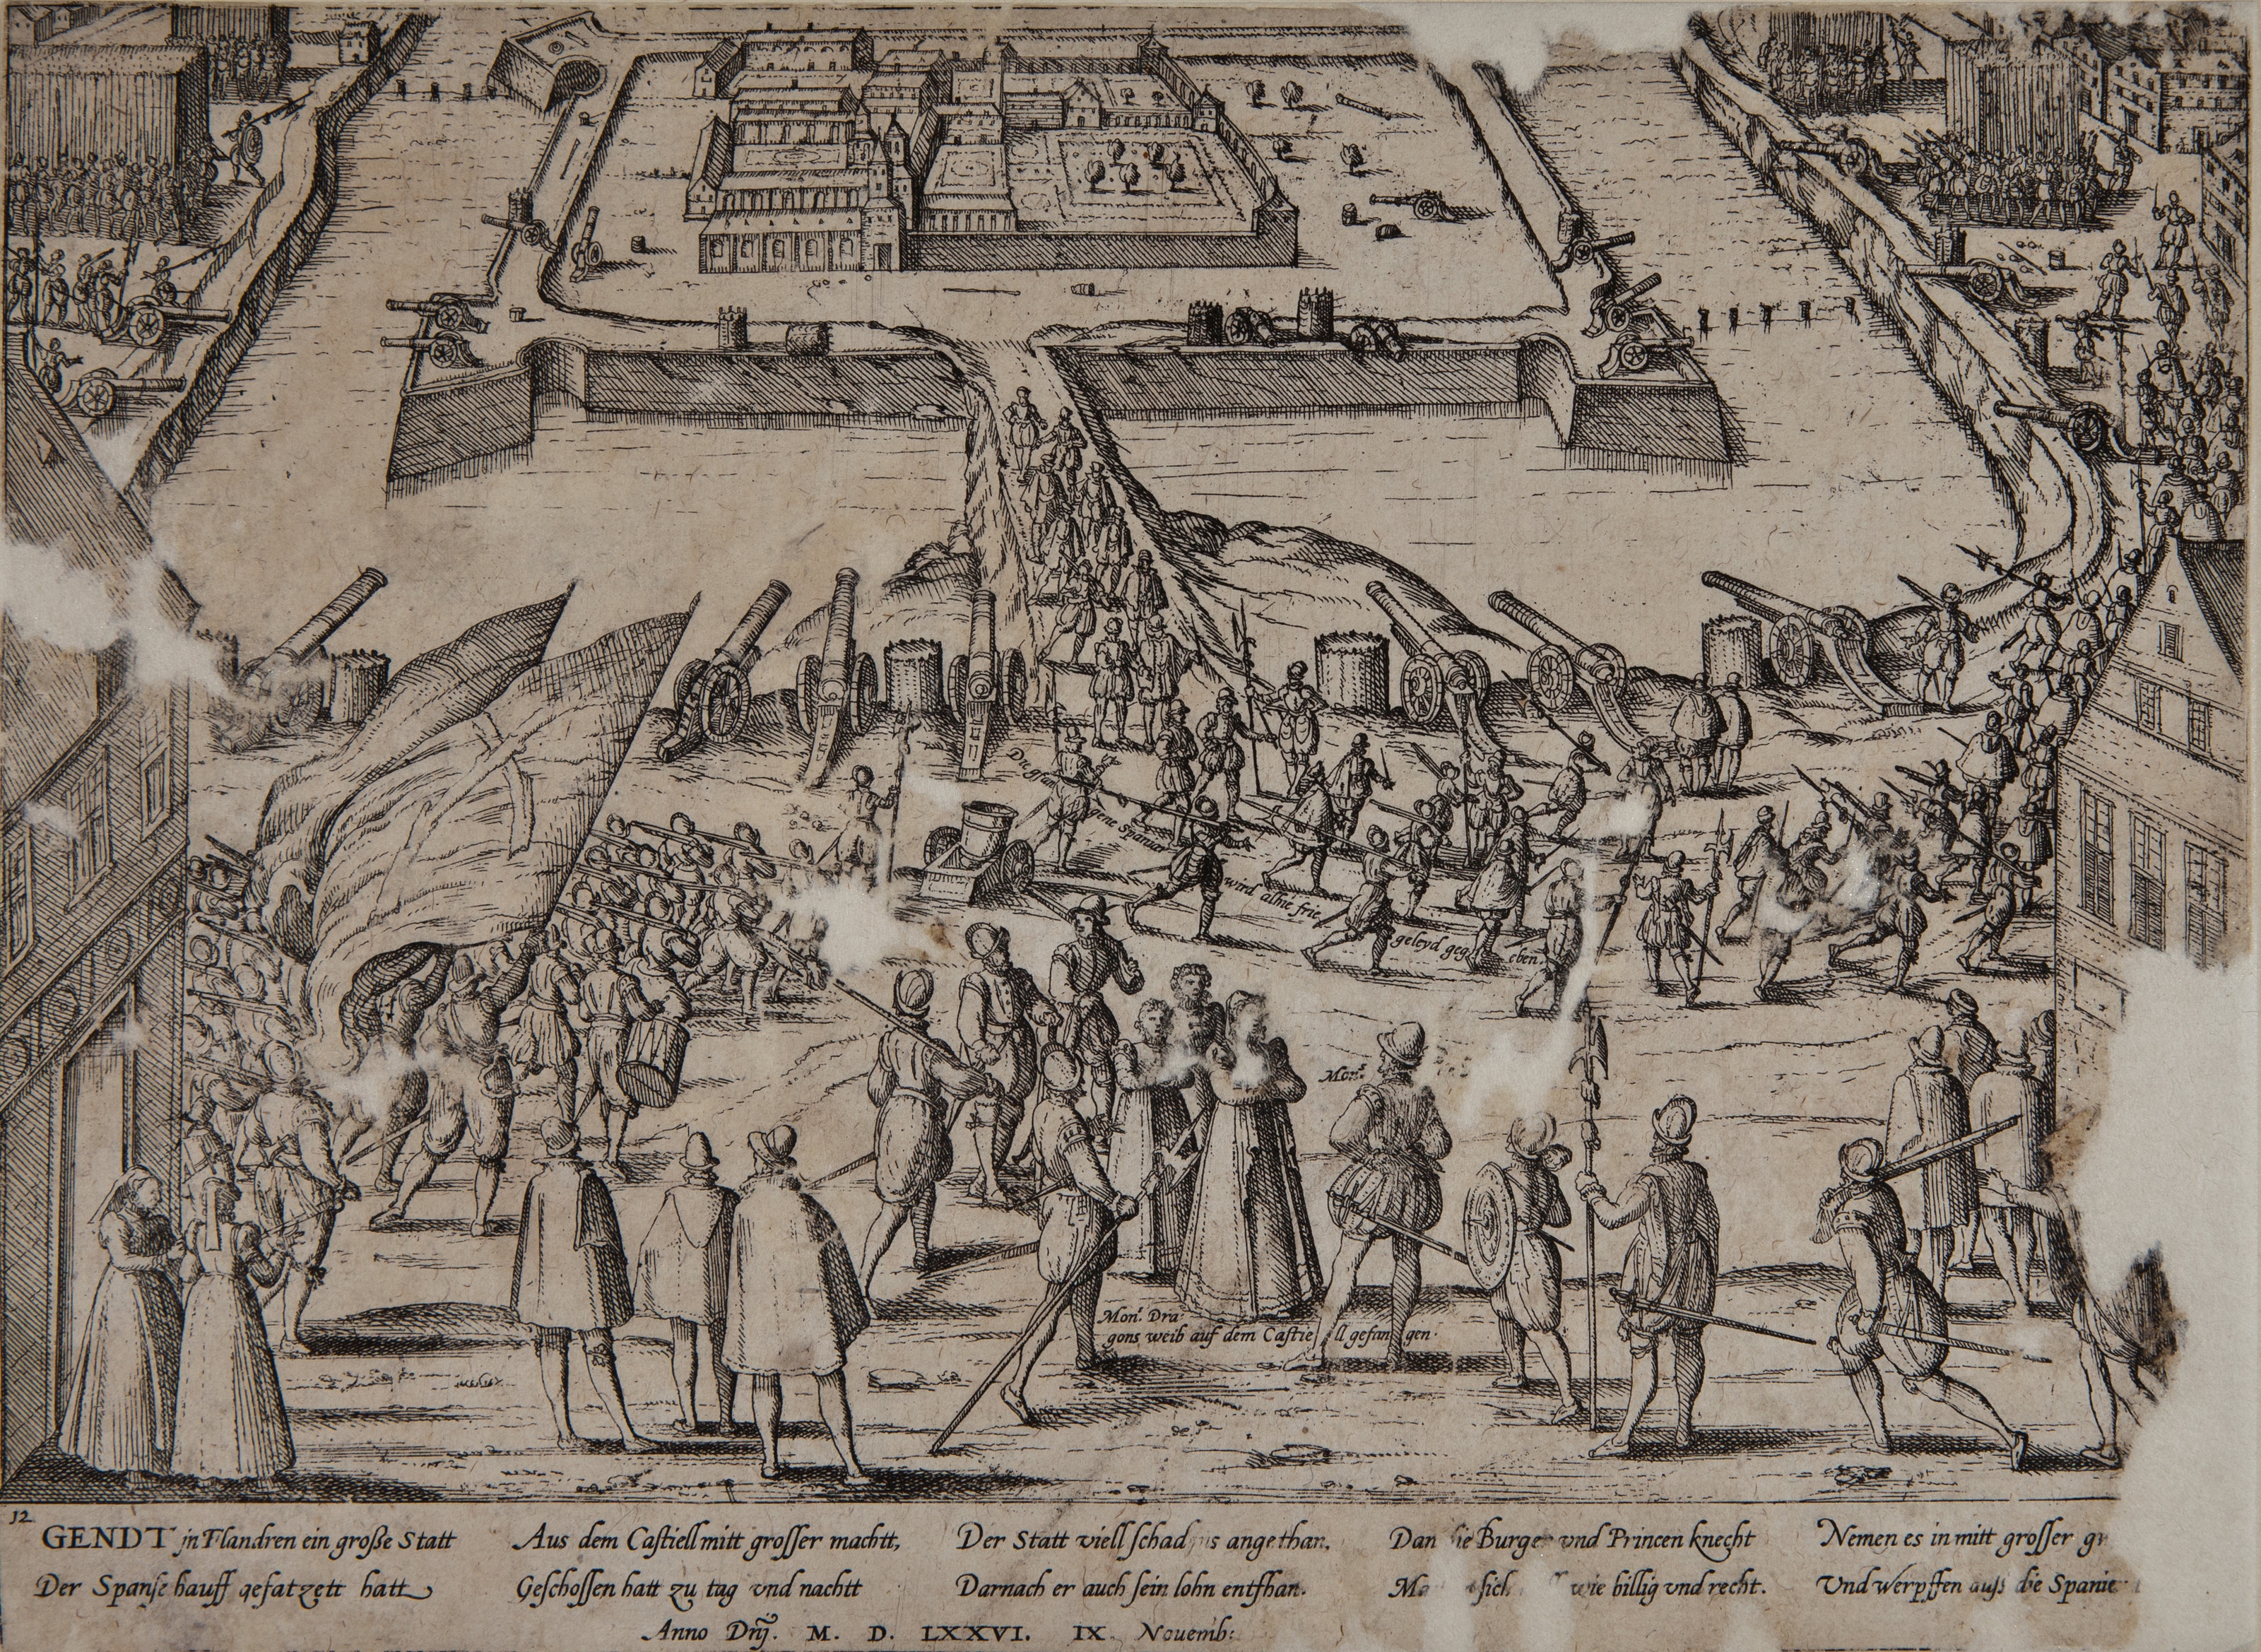 Die gfan gene Spanier wird alhie frie geleyd geg eben.
Monr.
Monr. Dra
gons weib auf dem Castie ll gefan gen.
12
GENDT in Flandren ein große Statt
Der Spanse hauff gesatzett hatt
Aus dem Castiell mitt grosser machtt,
Geschossen hatt zu tag vnd nachtt
Der Statt viell angethan.
Darnach er auch sein lohn entfhan.
Dan Burger vnd Princen knecht
wie billig vnd recht.
Nemen es in mitt grosser
Vnd werpffen auss die
Anno Dnj. M. D. LXXVI. IX Nouemb: